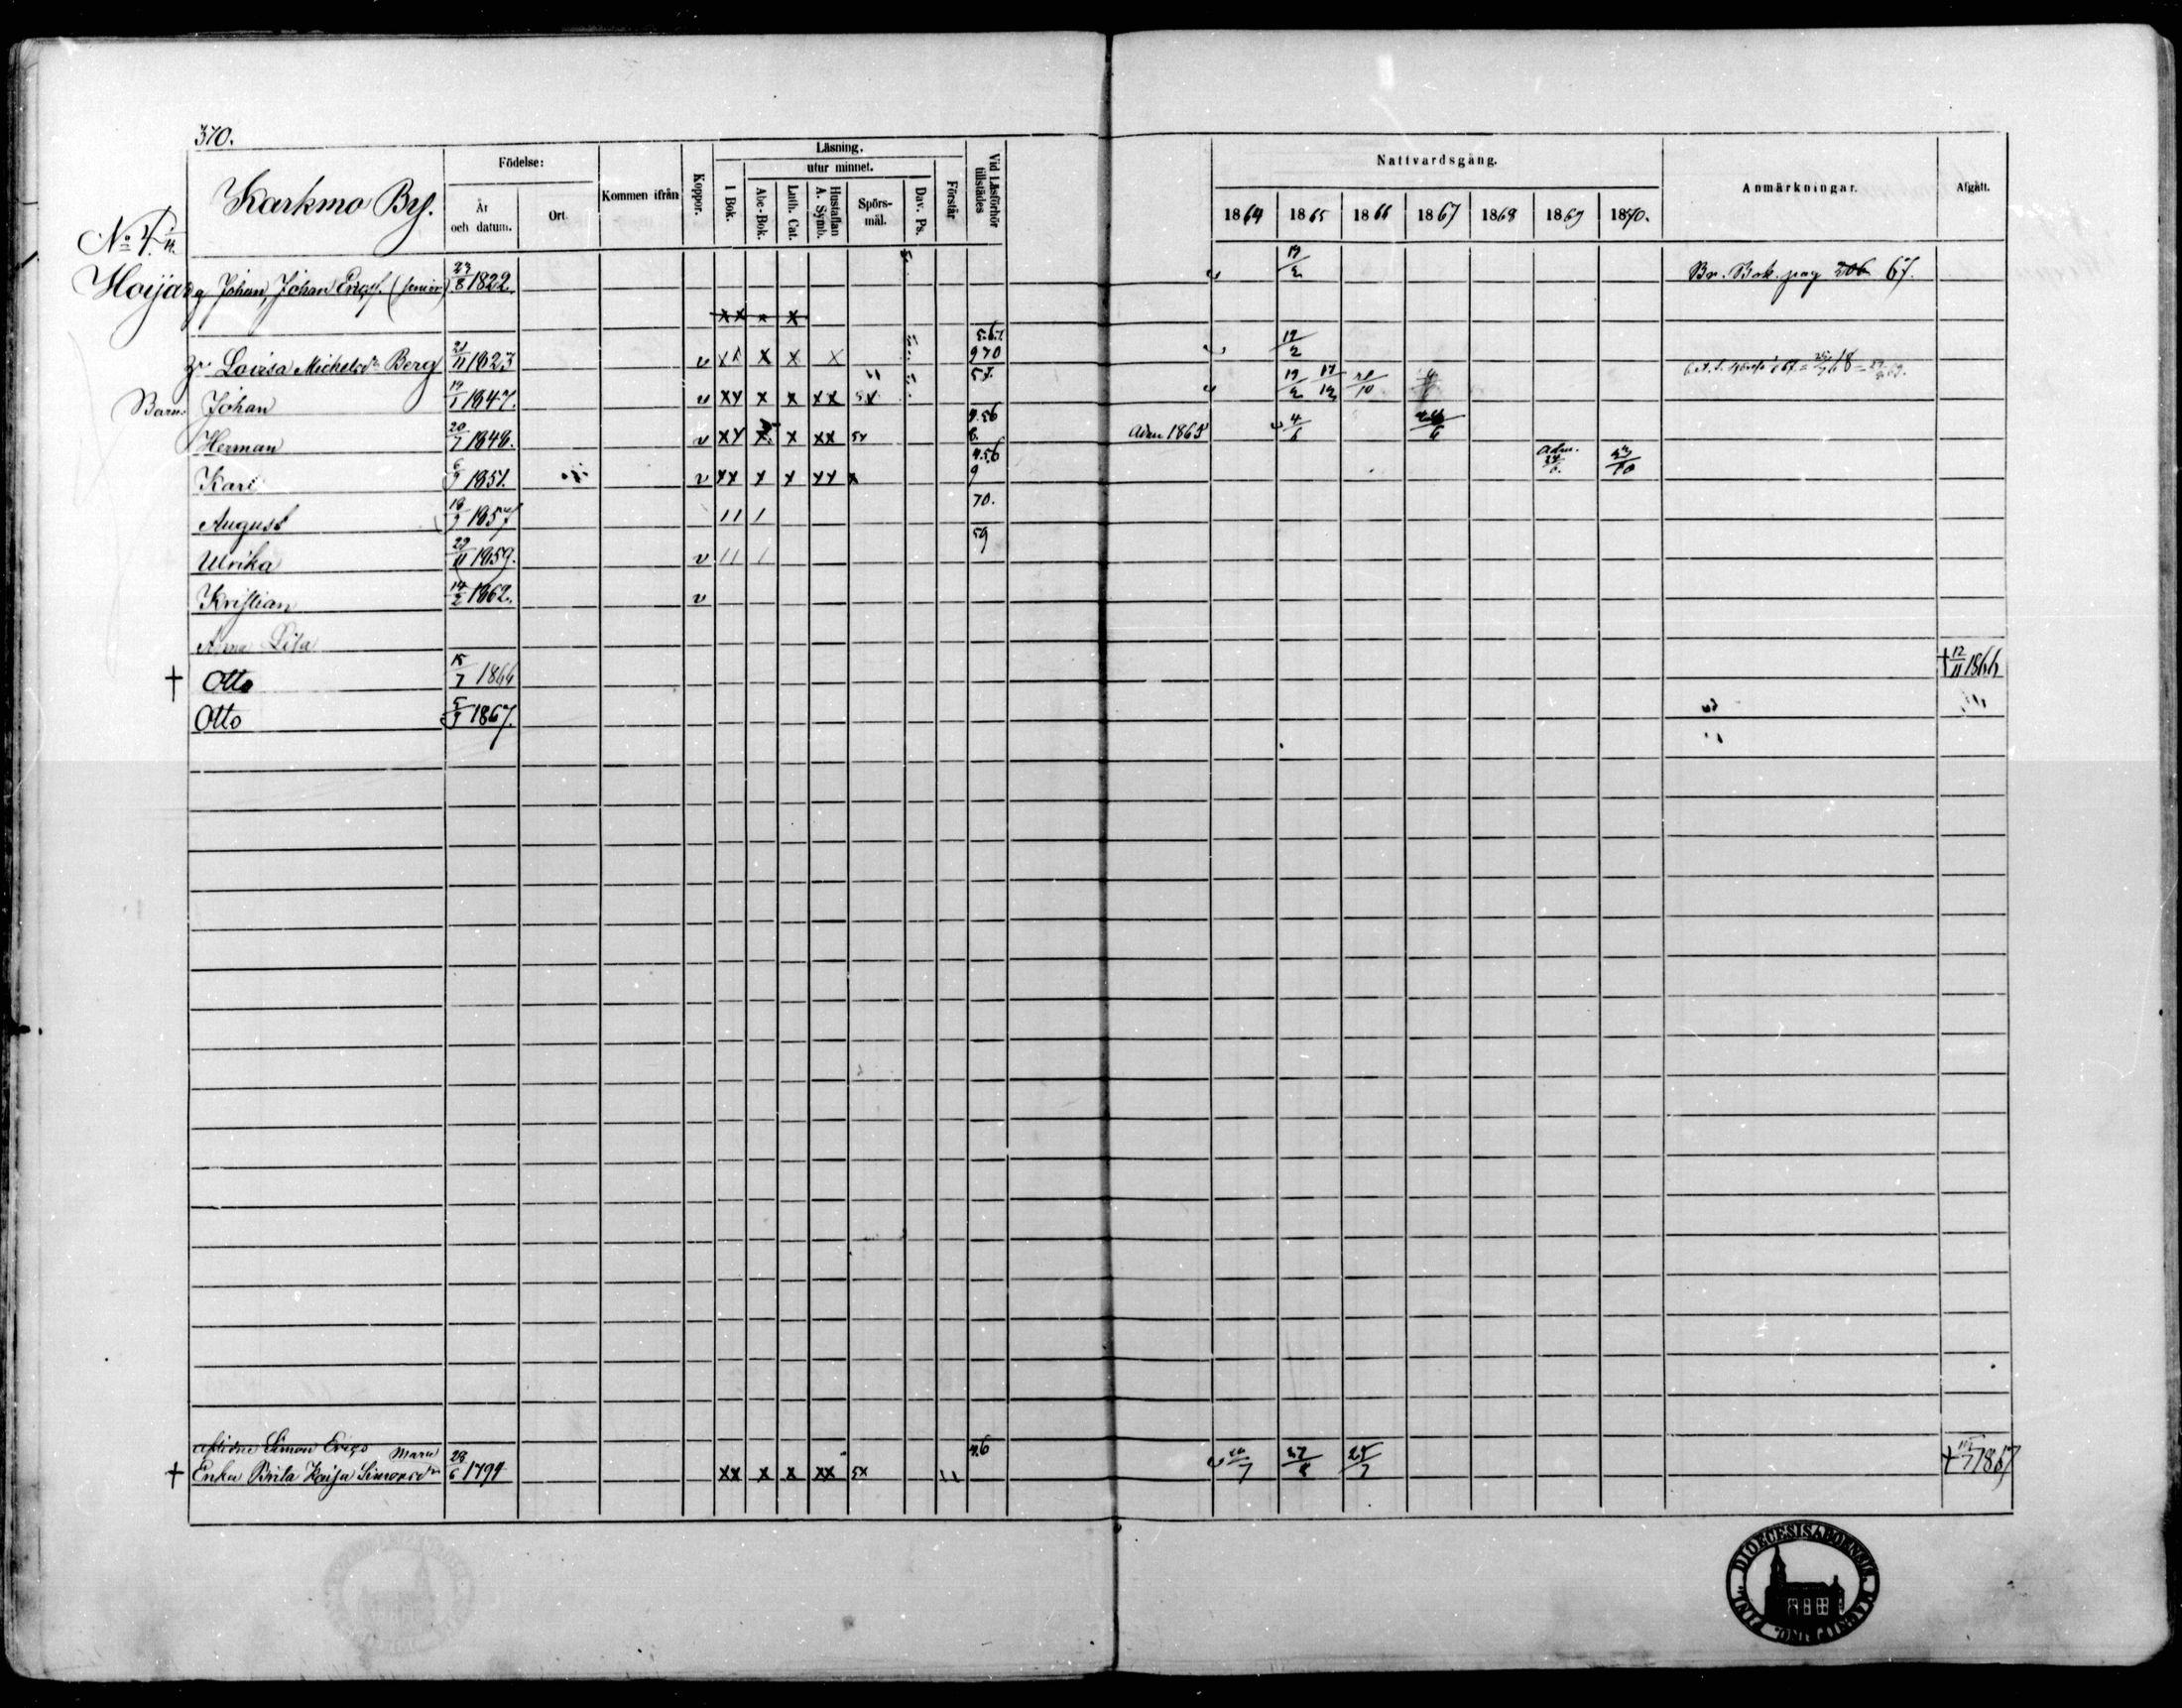 370.
Karkmo By.
Födelse:
År och datum.
Ort.
Kommen ifrån
Koppor.
Läsning,
utur minnet.
I Bok.
Abc-Bok.
Luth. Cat.
Hustaflan A. Symb.
Spörs-mål.
Dav. Ps.
Förstår
Vid Läsförhör tillstädes
Nattvardsgång.
1864 1865 1866 1867 1868 1869 1870.
Anmärkningar.
Afgått.
No 4.
Johan, Johan Erigs. (senior) 23/8 1822. 19/2 Br. Bok. pag 206 67.
xx x x
Lovisa Michelsdr Berg 21/11 1823 v xx x x x 5.6.7. 970 19/2
Barn: Johan 19/1 1847. v xx x x xx 5x 57. 19/2 17/12 21/10
Herman 20/7 1848. v xx x x xx 5x Adm 1865 4/6 24/6
Karl 6/9 1851. v xx x x xx x 4.5.6 9 Adm. 24/6. 23/10
August 18/9 1857 11 1 70.
Ulrika 29/11 1859. v 11 1 59
Kristian 14/2 1862. v
Anna Lisa
† Otto 15/7 1866 † 12/11 1866
Otto 5/9 1867.
Simon Erigs
† Enka Brita Kaisa Maria Simonsdr 28/6 1794 xx x x xx 5x 11 4.6 26/7 27/8 25/7 † 1867
DIOECESIS ABOENSIS